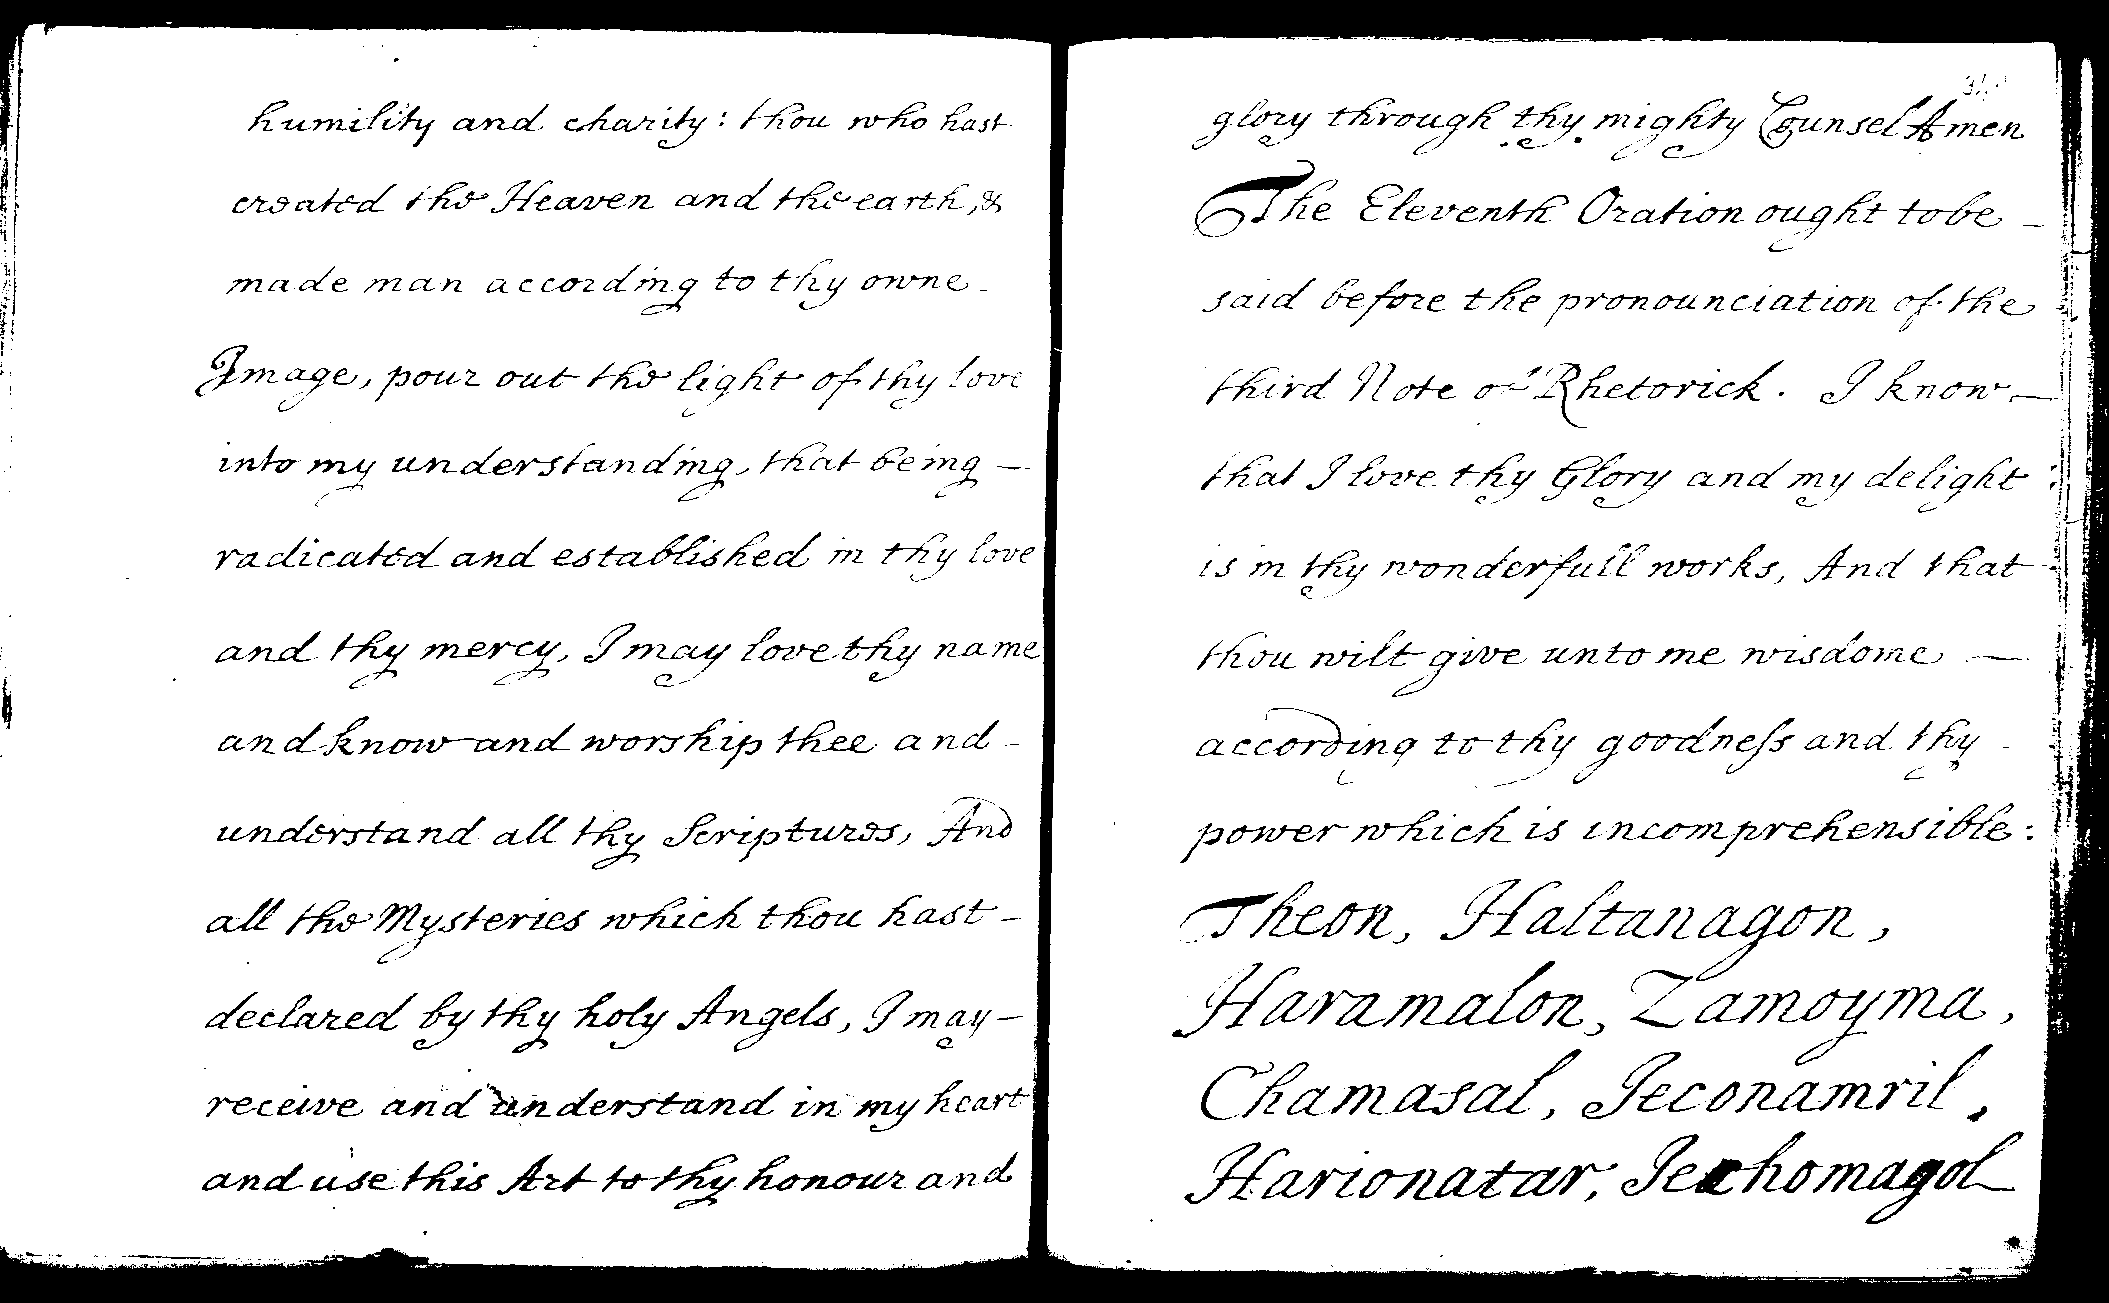 humility and charity: thou who hast
created the Heaven and the earth, &
made man according to thy owne -
Image, pour out the light of thy love
into my understanding, that being —
radicated and established in thy love
and thy mercy, I may love thy name
and know and worship thee and -
understand all thy Scriptures, And
all the Mysteries which thou hast -
declared by thy holy Angels, I may -
receive and understand in my heart
and use this Art to thy honour and
glory through thy mighty Counsel Amen
The Eleventh Oration ought to be -
said before the pronounciation of the
third Note of Rhetorick. I know —
that I love thy Glory and my delight
is in thy wonderfull works, And that
thou wilt give unto me wisdome —
according to thy goodneſs and thy -
power which is incomprehensible:
Theon, Haltanagon,
Haramalon, Zamoyma,
Chamasal, Jeconamril,
Harionatar, Jechomagol